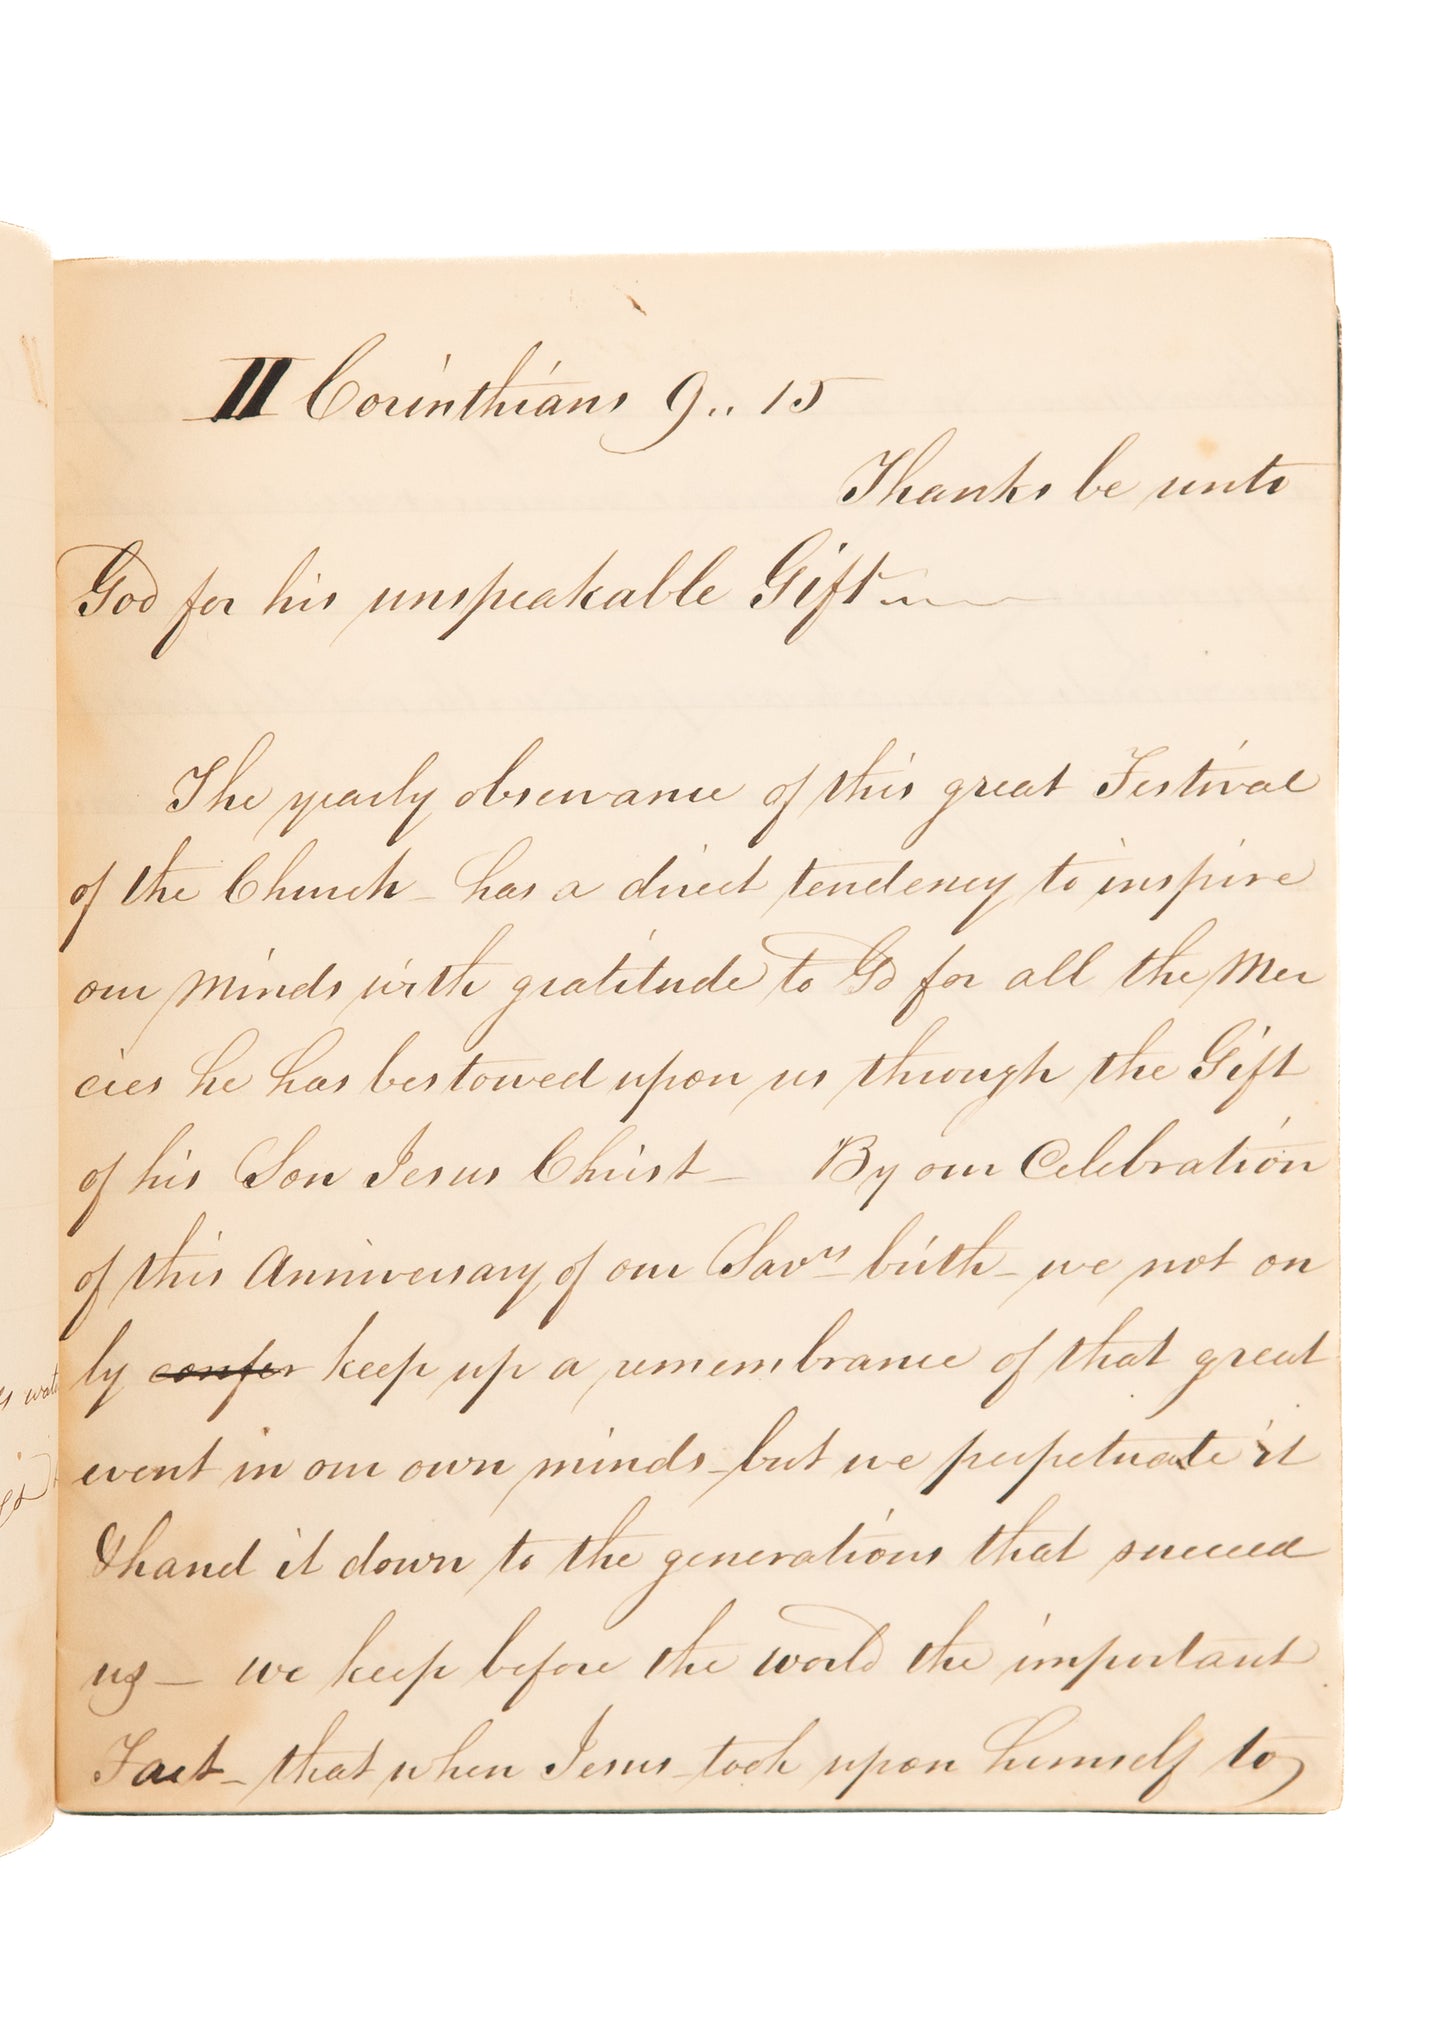 II Corinthians 9.. 15
Thanks be unto
God for his unspeakable Gift
The yearly observance of this great Festival
of the Church - has a direct tendency to inspire
our minds with gratitude to Gd for all the Mer
cies he has bestowed upon us through the Gift
of his Son Jesus Christ - By our Celebration
of this Anniversary of our Savrs birth - we not on
ly confer keep up a remembrance of that great
event in our own minds - but we perpetuate it
& hand it down to the generations that succeed
us - we keep before the world the important
Fact - that when Jesus took upon himself to